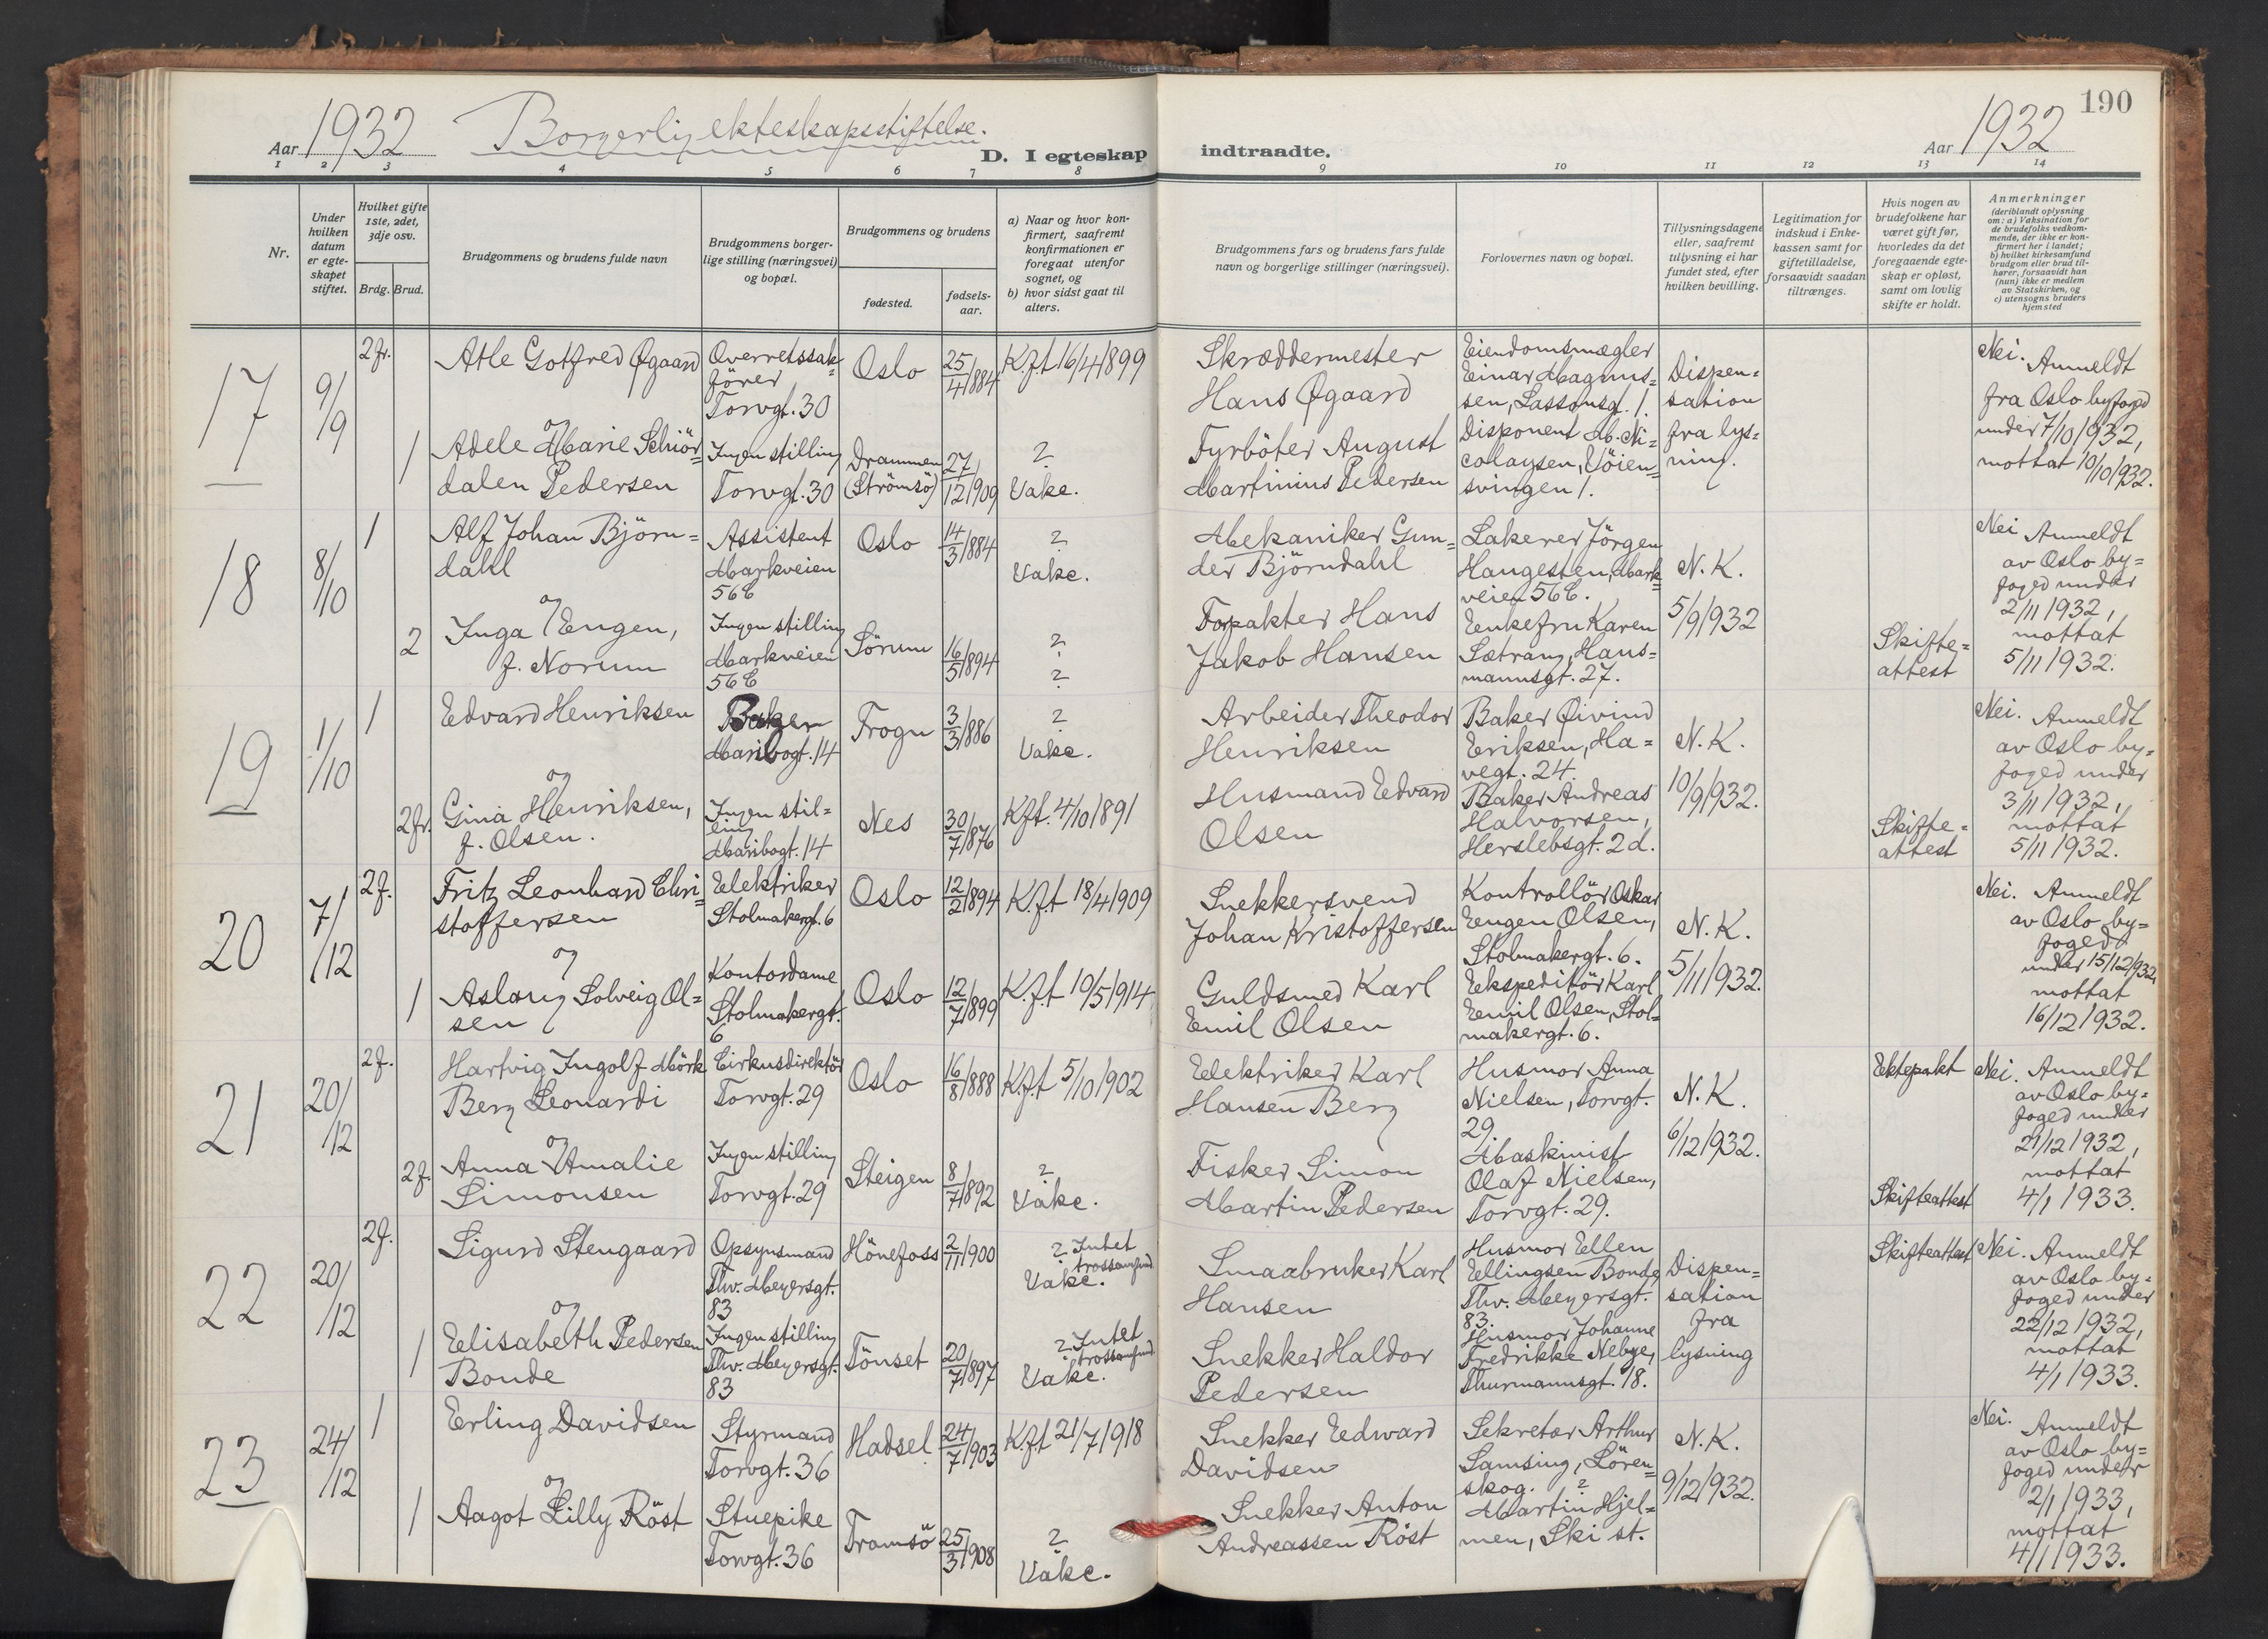 190
Aar 1932 Borgerlig ekteskapsstiftelse.
D. I egteskap indtraadte.
Aar 1932
1 2 3 4 5 6 7 8 9 10 11 12 13 14
Nr.
Under hvilken datum er egteskapet stiftet.
Hvilket gifte 1ste, 2det, 3dje osv.
Brdg. Brud.
Brudgommens og brudens fulde navn
Brudgommens borgerlige stilling (næringsvei) og bopæl.
Brudgommens og brudens
fødested.
fødselsaar.
a) Naar og hvor konfirmert, saafremt konfirmationen er foregaat utenfor sognet, og
b) hvor sidst gaat til alters.
Brudgommens fars og brudens fars fulde navn og borgerlige stillinger (næringsvei).
Forlovernes navn og bopæl.
Tillysningsdagene eller, saafremt tillysning ei har fundet sted, efter hvilken bevilling.
Legitimation for indskud i Enkekassen samt for giftetilladelse, forsaavidt saadan tiltrænges.
Hvis nogen av brudefolkene har været gift før, hvorledes da det foregaaende egteskap er opløst, samt om lovlig skifte er holdt.
Anmerkninger
(deriblandt oplysning om: a) Vaksination for de brudefolks vedkommende, der ikke er konfirmert her i landet;
b) hvilket kirkesamfund brudgom eller brud tilhører, forsaavidt han (hun) ikke er medlem av Statskirken, og
c) utensogns bruders hjemsted
17
9/9
2 fr.
Atle Gotfred Øgaard
Overretssak=
fører
Torvgt. 30
Oslo
25/4 1884
K.f.t 16/4 1899
Skræddermester
Hans Øgaard
Eiendomsmægler
Einar Magnus=
sen, Lassonsgt. 1.
Dispen=
sation
fra lys=
ning.
Nei. Anmeldt
fra Oslo byfoged
under 7/10 1932,
mottat 10/10 1932.
og
1
Adele Marie Schiör=
dalen Pedersen
Ingen stilling
Torvgt. 30
Drammen
(Strömsö)
27/12 1909
?
Vake.
Fyrböter August
Martinius Pedersen
Disponent M. Ni=
colaysen, Vöien=
svingen 1.
18
8/10
1
Alf Johan Björn=
dahl
Assistent
Markveien
56 C
Oslo
14/3 1884
?
Vake.
Mekaniker Gun=
der Björndahl
Lakerer Jörgen
Haugesten, Mark=
veien 56 C.
N.K.
5/9 1932
Nei Anmeldt
av Oslo by=
foged under
2/11 1932,
mottat
5/11 1932.
og
2
Inga Engen,
f. Norum
Ingen stilling
Markveien
56 C
Sörum
16/5 1894
?
?
Forpakter Hans
Jakob Hansen
Enkefru Karen
Sætrang, Haus=
mannsgt. 27.
Skifte=
attest
19
1/10
1
Edvard Henriksen
Baker
Maribogt. 14
Frogn
3/3 1886
?
Vake.
Arbeider Theodor
Henriksen
Baker Øivind
Eriksen, Ha=
vegt. 24.
N.K.
10/9 1932.
Nei. Anmeldt
av Oslo by=
foged under
3/11 1932,
mottat
5/11 1932.
og
2 fr.
Gina Henriksen,
f. Olsen.
Ingen stil=
ling
Maribogt. 14
Nes
30/7 1876
K.f.t. 4/10 1891
Husmand Edvard
Olsen
Baker Andreas
Halvorsen,
Herslebsgt. 2 d.
Skifte=
attest
20
7/12
2 f.
Fritz Leonhard Chri=
stoffersen
Elektriker
Stolmakergt. 6
Oslo
12/2 1894
K.f.t 18/4 1909
Snekkersvend
Johan Kristoffersen
Kontrollör Oskar
Eugen Olsen,
Stolmakergt. 6.
N.K.
5/11 1932.
Nei. Anmeldt
av Oslo by=
foged
under 15/12 1932,
mottat
16/12 1932.
og
1
Aslaug Solveig Ol=
sen
Kontordame
Stolmakergt.
6
Oslo
12/7 1899
K.f.t 10/5 1914
Guldsmed Karl
Emil Olsen
Ekspeditör Karl
Emil Olsen, Stol=
makergt. 6.
21
20/12
2 f.
Hartvig Ingolf Mörk
Berg Leonardi
Cirkusdirektör
Torvgt. 29
Oslo
16/8 1888
K.f.t 5/10 1902
Elektriker Karl
Hansen Berg
Husmor Anna
Nielsen, Torvgt.
29
N.K.
6/12 1932.
Ektepakt
Nei. Anmeldt
av Oslo by=
foged under
21/12 1932,
mottat
4/1 1933.
og
2 f.
Anna Amalie
Simonsen
Ingen stilling
Torvgt. 29
Steigen
8/7 1892
?
Vake.
Fisker Simon
Martin Pedersen
Maskinist
Olaf Nielsen,
Torvgt. 29.
Skifteattest
22
20/12
2 f.
Sigurd Stengaard
Opsynsmand
Thv. Meyersgt.
83
Hönefoss
2/11 1900
? Intet
trossamfund
Vake.
Smaabruker Karl
Hansen
Husmor Ellen
Ellingsen Bonde,
Thv. Meyersgt.
83.
Dispen=
sation
fra
lysning
Skifteattest
Nei. Anmeldt
av Oslo by=
foged under
22/12 1932,
mottat
4/1 1933.
og
1
Elisabeth Pedersen
Bonde
Ingen stilling
Thv. Meyersgt.
83
Tönset
20/7 1897
? Intet
trossamfund
Vake.
Snekker Haldor
Pedersen
Husmor Johanne
Fredrikke Nebye,
Thurmannsgt. 18.
23
24/12
1
Erling Davidsen
Styrmand
Torvgt. 36
Hadsel
24/7 1903
K.f.t 21/7 1918
Snekker Edward
Davidsen
Sekretær Arthur
Samsing, Lören=
skog.
N.K.
9/12 1932.
Nei. Anmeldt
av Oslo by=
foged under
2/1 1933,
mottat
4/1 1933.
og
1
Aagot Lilly Röst
Stuepike
Torvgt. 36
Tromsö
25/3 1908
?
Vake.
Snekker Anton
Andreassen Röst
?
Martin Hjel=
men, Ski st.